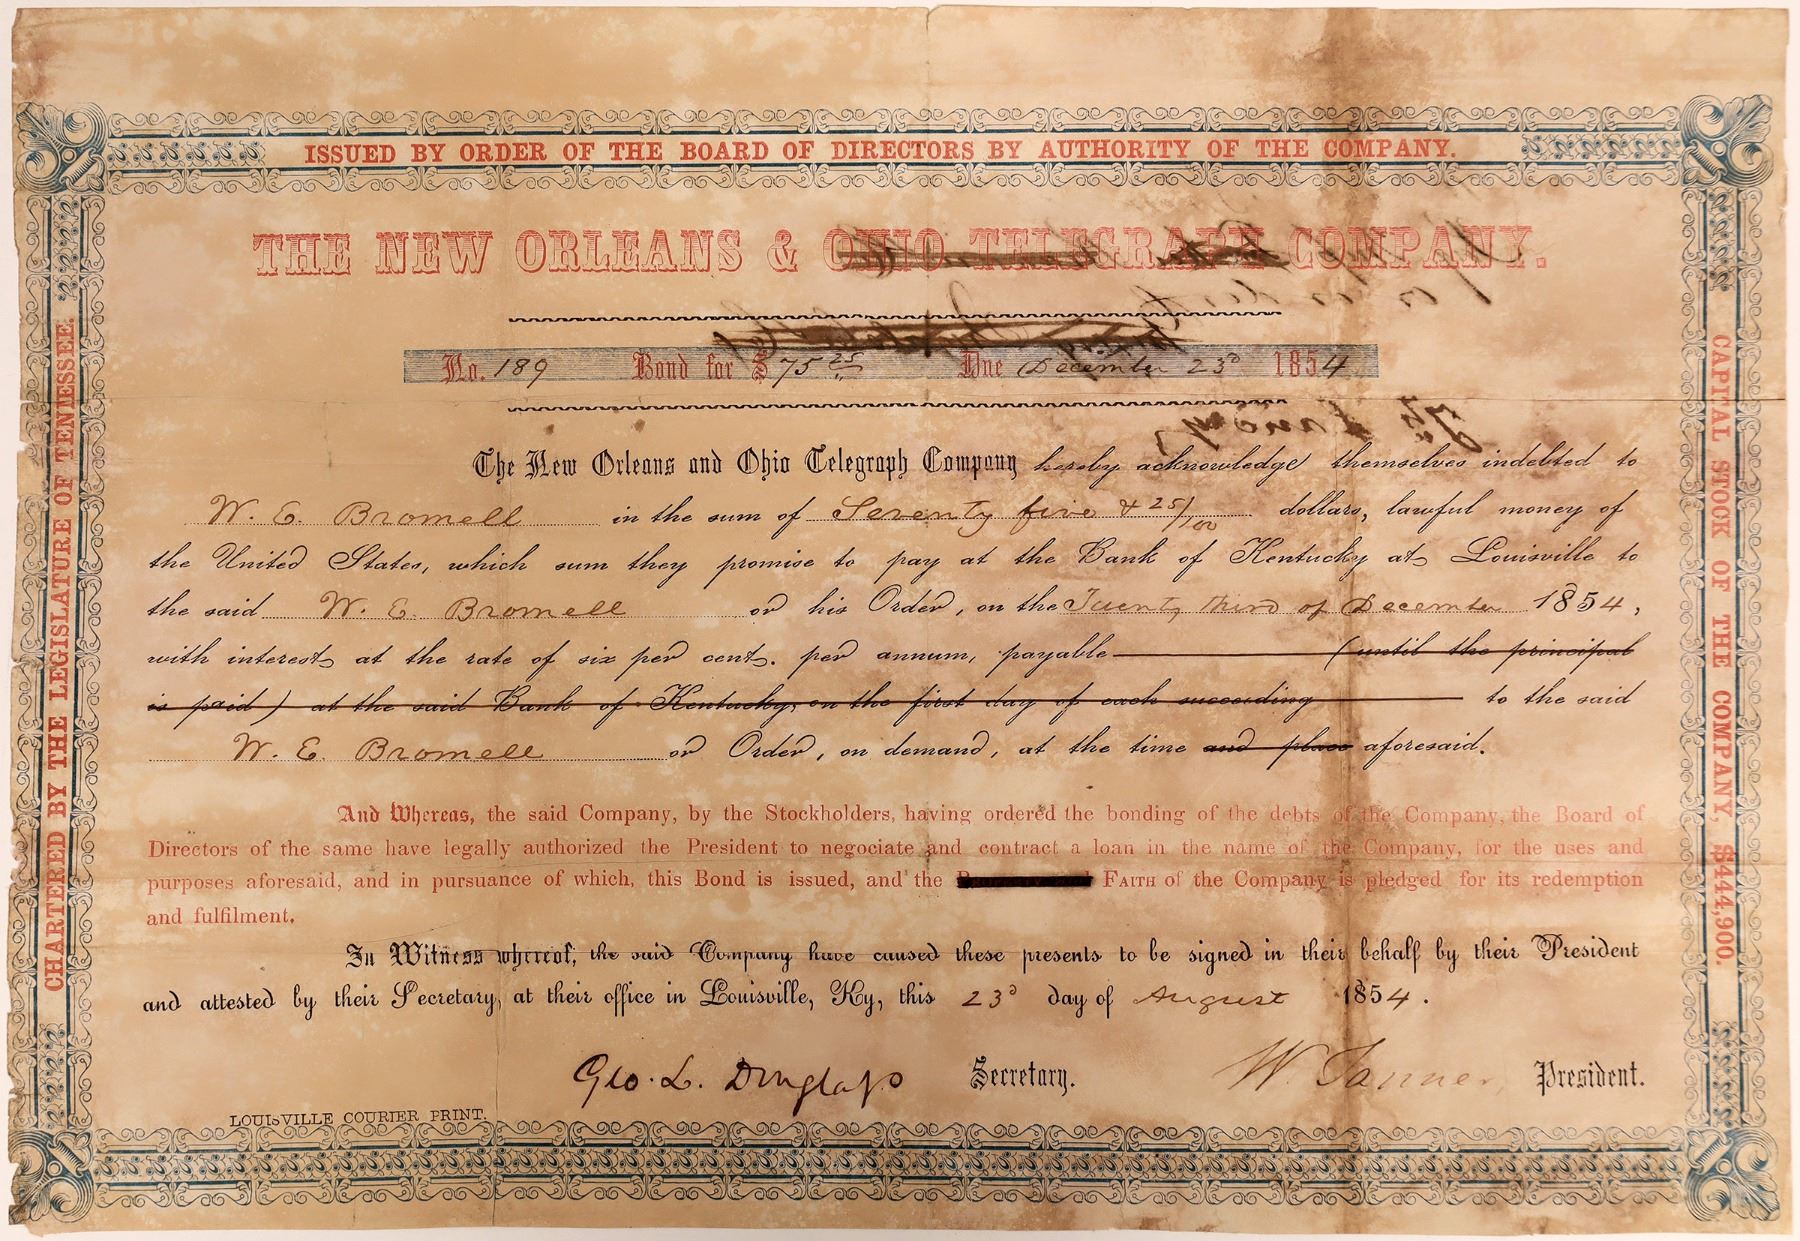 ISSUED BY ORDER OF THE BOARD OF DIRECTORS BY AUTHORITY OF THE COMPANY.
CHARTERED BY THE LEGISLATURE OF TENNESSEE.
CAPITAL STOCK OF THE COMPANY, $444,900.
THE NEW ORLEANS & OHIO TELEGRAPH COMPANY.
No. 189 Bond for $ 75 25 Due December 23d 1854
The New Orleans and Ohio Telegraph Company hereby acknowledge themselves indebted to
W. E. Bromell in the sum of Seventy five & 25/100 dollars, lawful money of
the United States, which sum they promise to pay at the Bank of Kentucky at Louisville to
the said W. E. Bromell or his Order, on the Twenty third of December 1854,
with interest at the rate of six per cent. per annum, payable (until the principal
is paid) at the said Bank of Kentucky, on the first day of each succeeding to the said
W. E. Bromell or Order, on demand, at the time and place aforesaid.
And Whereas, the said Company, by the Stockholders, having ordered the bonding of the debts of the Company, the Board of
Directors of the same have legally authorized the President to negociate and contract a loan in the name of the Company, for the uses and
purposes aforesaid, and in pursuance of which, this Bond is issued, and the FAITH of the Company is pledged for its redemption
and fulfilment.
In Witness whereof, the said Company have caused these presents to be signed in their behalf by their President
and attested by their Secretary, at their office in Louisville, Ky, this 23d day of August 1854.
Geo. L. Douglass Secretary. W. Tanner, President.
LOUISVILLE COURIER PRINT.